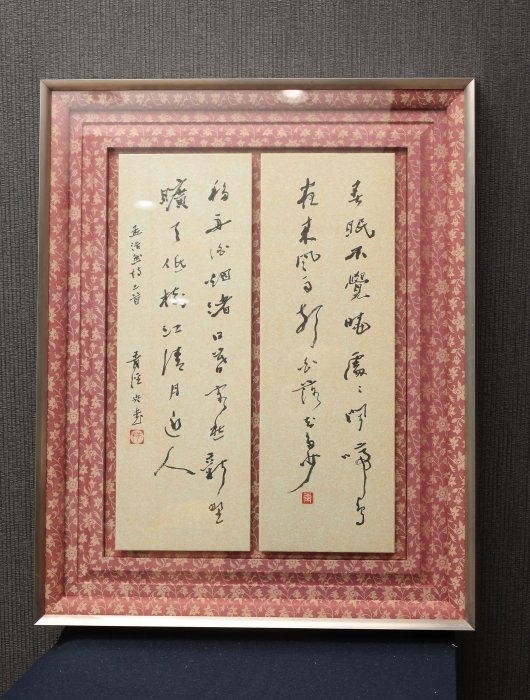 春眠不覺曉處〻聞啼鳥
夜来風雨聲花落知多少
移舟泊烟渚日暮客愁新野
曠天低樹江清月近人
孟浩然詩二首